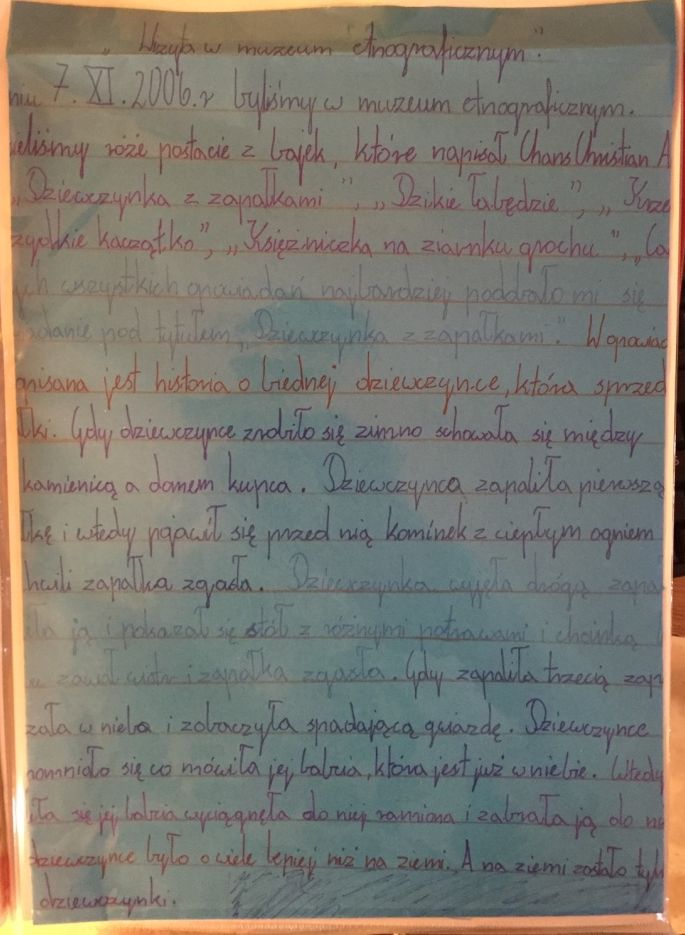 „Wizyta w muzeum etnograficznym."
niu 7.XI.2006.r byliśmy w muzeum etnograficznym.
ieliśmy róże postacie z bajek, które napisał Chans Christian A
„Dziewczynka z zapałkami", „Dzikie łabędzie", „Krze
zydkie kaczątko", „Księżniczka na ziarnku grochu", „Ca
ych wszystkich opowiadań najbardziej poddbało mi się
iadanie pod tytułem „Dziewczynka z zapałkami." W opowiad
opisana jest historia o biednej dziewczynce, która sprzed
łki. Gdy dziewczynce zrobiło się zimno schowała się między
kamienicą a domem kupca. Dziewczynca zapaliła pierwszą
łkę i wtedy pojawił się przed nią kominek z ciepłym ogniem
hcili zapałka zgasła. Dziewczynka wyjęła drógą zapa
iła ją i pokazał się stół z różnymi potrawami i choinką
zawał wiatr i zapałka zgasła. Gdy zapaliła trzecią zap
zała w niebo i zobaczyła spadającą gwiazdę. Dziewczynce
pomniało się co mówiła jej babcia, która jest już w niebie. Wtedy
iła się jej babcia wyciągnęła do niej ramiona i zabrała ją do ni
dziewczynce było o wiele lepiej niż na ziemi. A na ziemi zostało tyl
dziewczynki.